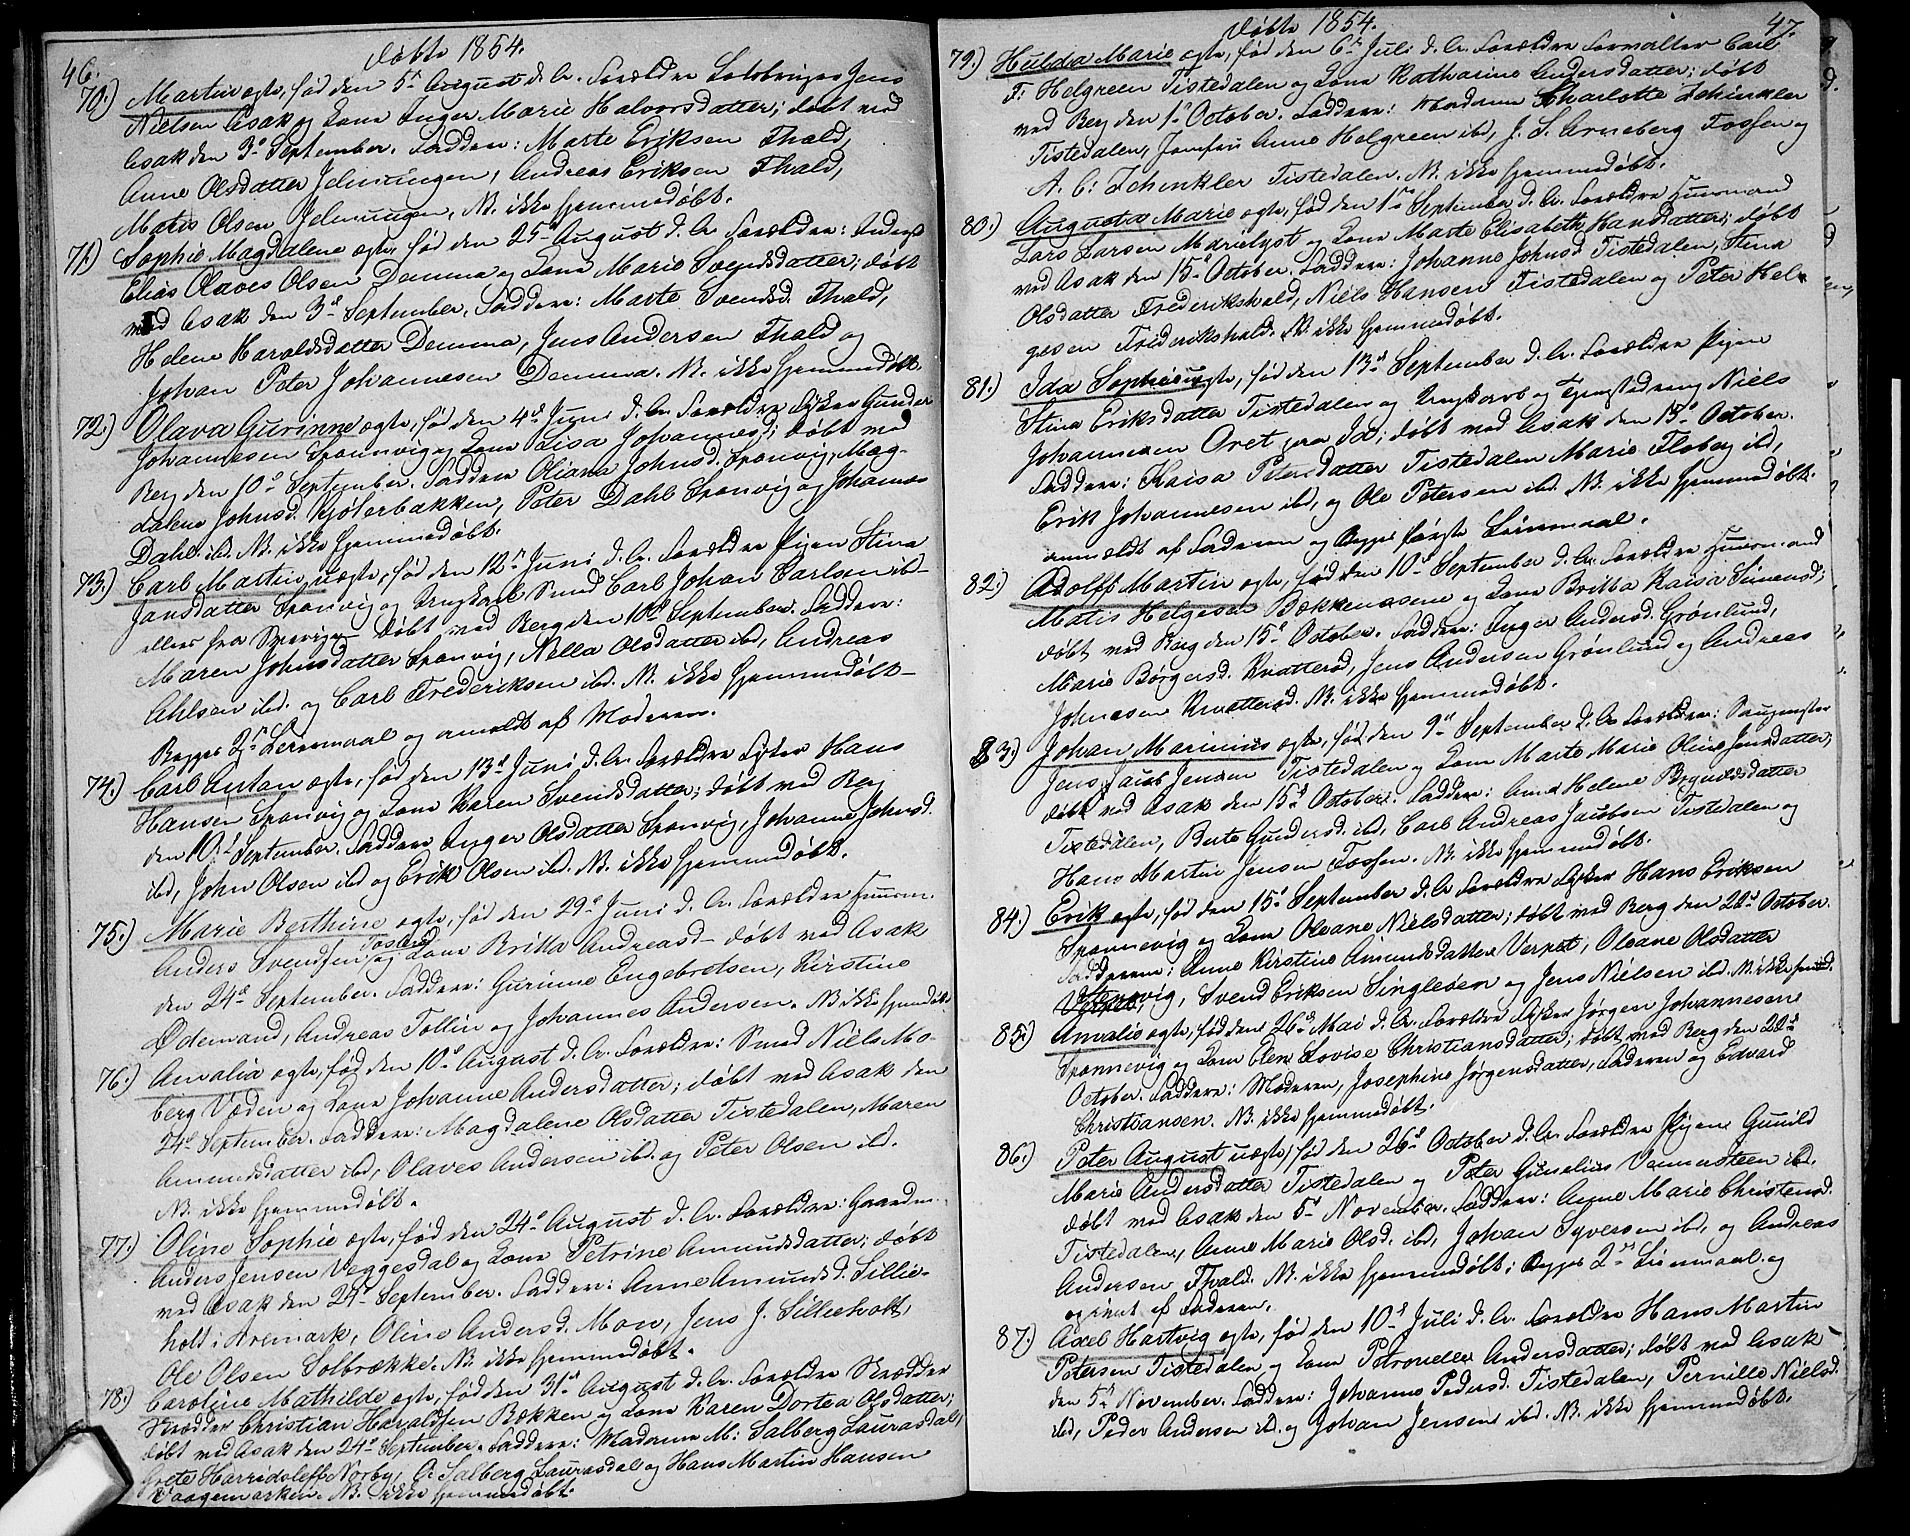 46.
Døbte 1854.
70.) Martin ægte, fød den 5te August d. A. Forældre Losbringer Jens
Nielsen Asak og Kone Inger Marie Halvorsdatter; døbt ved
Asak den 3de September. Faddere: Marte Eriksen Fhald,
Anne Olsdatter Jelmungen, Andreas Eriksen Fhald,
Matis Olsen Jelmungen, NB. ikke hjemmedøbt.
71.) Sophie Magdalene ægte, fød den 25de August d. A. Forældre: Inderst
Elias Olaves Olsen Demma og Kone Marie Svendsdatter; døbt
ved Asak den 3de September. Faddere: Marte Svendsd. Fhald,
Helene Haraldsdatter Demma, Jens Andersen Fhald og
Johan Peter Johannesen Demma. NB. ikke hjemmedøbt.
72.) Olava Gurinne ægte, fød den 4de Juni d. A. Forældre Fisker Gunder
Johannesen Sponvig og Kone Lisa Johannesd; døbt ved
Berg den 10de September. Faddere Oliana Johnsd. Sponvig, Mag-
dalene Johnsd. Kjølerbakken, Peter Dahl Sponvig og Johannes
Dahl ibd. NB. ikke hjemmedøbt.
73.) Carl Martin uægte, fød den 12te Juni d. A. Forældre Pigen Stina
Jansdatter Sponvig og Ungkarl Smed Carl Johan Carlsen ibd-
eller fra Sverige døbt ved Berg den 10de September. Faddere:
Maren Johnsdatter Sponvig, Nella Olsdatter ibd, Andreas
Ahlsen ibd. og Carl Frederiksen ibd. NB. ikke hjemmedøbt-
Begges 2de Leiermaal og anmeldt af Moderen.
74.) Carl Anton ægte, fød den 13de Juni d. A. Forældre Fisker Hans
Hansen Sponvig og Kone Karen Svendsdatter; døbt ved Berg
den 10de September. Faddere Inger Olsdatter Sponvig, Johanne Johnsd.
ibd, John Olsen ibd og Erik Olsen ibd. NB. ikke hjemmedøbt.
75.) Marie Berthine ægte, fød den 29de Juni d. A. Forældre Huusm.
Anders Svendsen Fosland og Kone Britta Andreasd- døbt ved Asak
den 24de September. Faddere: Gurinne Engebretsen, Kirstine
Ødemand, Andreas Tollin og Johannes Andersen. NB ikke hjemdøbt.
76.) Amalia ægte, fød den 10de August d. A. Forældre: Smed Niels Mo-
berg Væden og Kone Johanne Andersdatter; døbt ved Asak den
24de September. Faddere: Magdalene Olsdatter Tistedalen, Maren
Amundsdatter ibd, Olaves Andersen ibd. og Peter Olsen ibd.
NB. ikke hjemmedøbt.
77.) Oline Sophie ægte, fød den 24de August d. A. Forældre: Gaardm.
Anders Jensen Veggesdal og Kone Petrine Amundsdatter; døbt
ved Asak den 24de September. Faddere: Anne Amundsd. Sillie-
holt i Aremark, Oline Andersd. Mon, Jens J. Sillieholt,
Ole Olsen Solbrække. NB. ikke hjemmedøbt.
78.) Caroline Mathilde ægte, fød den 31te August d. A. Forældre Skrædder
Skrædder Christian Haraldsen Bækken og Kone Karen Dortea Olsdatter;
døbt ved Asak den 24de September. Faddere: Madame M: Salberg Laurasdal,
Grete Norby, Salberg Laurasdal og Hans Martin Hansen
NB. ikke hjemmedøbt.
47.
Døbte 1854.
79.) Hulda Marie ægte, fød den 6te Juli d. A. Forældre Forvalter Carl
F: Helgreen Tistedalen og Kone Katharine Andersdatter; døbt
ved Berg den 1ste October. Faddere: Madame Charlotte Schinkler
Tistedalen, Jomfru Anne Helgreen ibd, J. S. Arneberg Fossen og
A. C: Schinkler Tistedalen. NB. ikke hjemmedøbt.
80.) Augusta Marie ægte, fød den 1ste September d. A. Forældre Huusmand
Lars Larsen Marielyst og Kone Marte Elisabeth Hansdatter; døbt
ved Asak den 15de October. Faddere: Johanne Johnsd Tistedalen, Stina
Olsdatter Frederikshald, Niels Hansen Tistedalen og Peter Hel-
gesen Frederikshald. NB. ikke hjemmedøbt.
81.) Ida Sophie uægte, fød den 13de September d. A. Forældre Pigen
Stina Eriksdatter Tistedalen og Ungkarl og Tjenestedreng Niels
Johannesen Oret fra Id; døbt ved Asak den 15de October.
Faddere: Kaisa Petersdatter Tistedalen Marie Floberg ibd,
Erik Johannesen ibd, og Ole Petersen ibd. NB. ikke hjemmedøbt.
anmeldt af Faderen og Begges første Leiermaal.
82.) Adolff Martin ægte, fød den 10de September d. A. Forældre Huusmand
Matis Helgesen Bækkenæsene og Kone Britta Kaisa Simensd;
døbt ved Berg den 15de October. Faddere: Inger Andersd. Grønlund,
Marie Børgersd. Kvatterød, Jens Andersen Grønlund og Andreas
Johnesen Kvatterød. NB. ikke hjemmedøbt.
83.) Johan Marinius ægte, fød den 9de September d. A. Forældre: Saugmester
Jens Jacob Jensen Tistedalen og Kone Marte Marie Oline Jensdatter;
døbt ved Asak den 15de October. Faddere: Anne Helene Brynildsdatter
Tistedalen, Berte Gundersd. ibd, Carl Andreas Jacobsen Tistedalen og
Hans Martin Jensen Fossen. NB. ikke hjemmedøbt.
84.) Erik ægte, fød den 15de September d. A. Forældre Fisker Hans Eriksen
Sponnevig og Kone Oleane Nielsdatter; døbt ved Berg den 22de October.
Fadderne: Anne Kirstine Amundsdatter Verpet, Oleane Olsdatter
Sponvig, Svend Eriksen Singleøen og Jens Nielsen ibd. NB. ikke hjemd.
85.) Amalie ægte, fød den 26de Mai d. A. Forældre Fisker Jørgen Johannesene
Sponnevig og Kone Elen Lovise Christiansdatter; døbt ved Berg den 22de
October. Faddere: Moderen, Josephine Jørgensdatter, Faderen og Edvard
Christiansen. NB. ikke hjemmedøbt.
86.) Peter August uægte, fød den 26de October d. A. Forældre Pigene Gunild
Marie Andersdatter Tistedalen og Peter Gunelius Vennersteen ibd.
døbt ved Asak den 5te November. Faddere: Anne Marie Christensd.
Tistedalen, Anne Marie Olsd. ibd, Johan Syversen ibd, og Andreas
Andersen Fhald. NB. ikke hjemmedøbt; Begges 2de Leiermaal og
opgivet af Faderen.
87.) Axel Hartvig ægte, fød den 10de Juli d. A. Forældre Hans Martin
Petersen Tistedalen og Kone Petronelle Andersdatter; døbt ved Asak
den 5te November. Faddere: Johanne Pedersd. Tistedalen, Pernille Nielsd.
ibd, Peder Andersen ibd. og Johan Jensene ibd. NB. ikke hjemmedøbt.